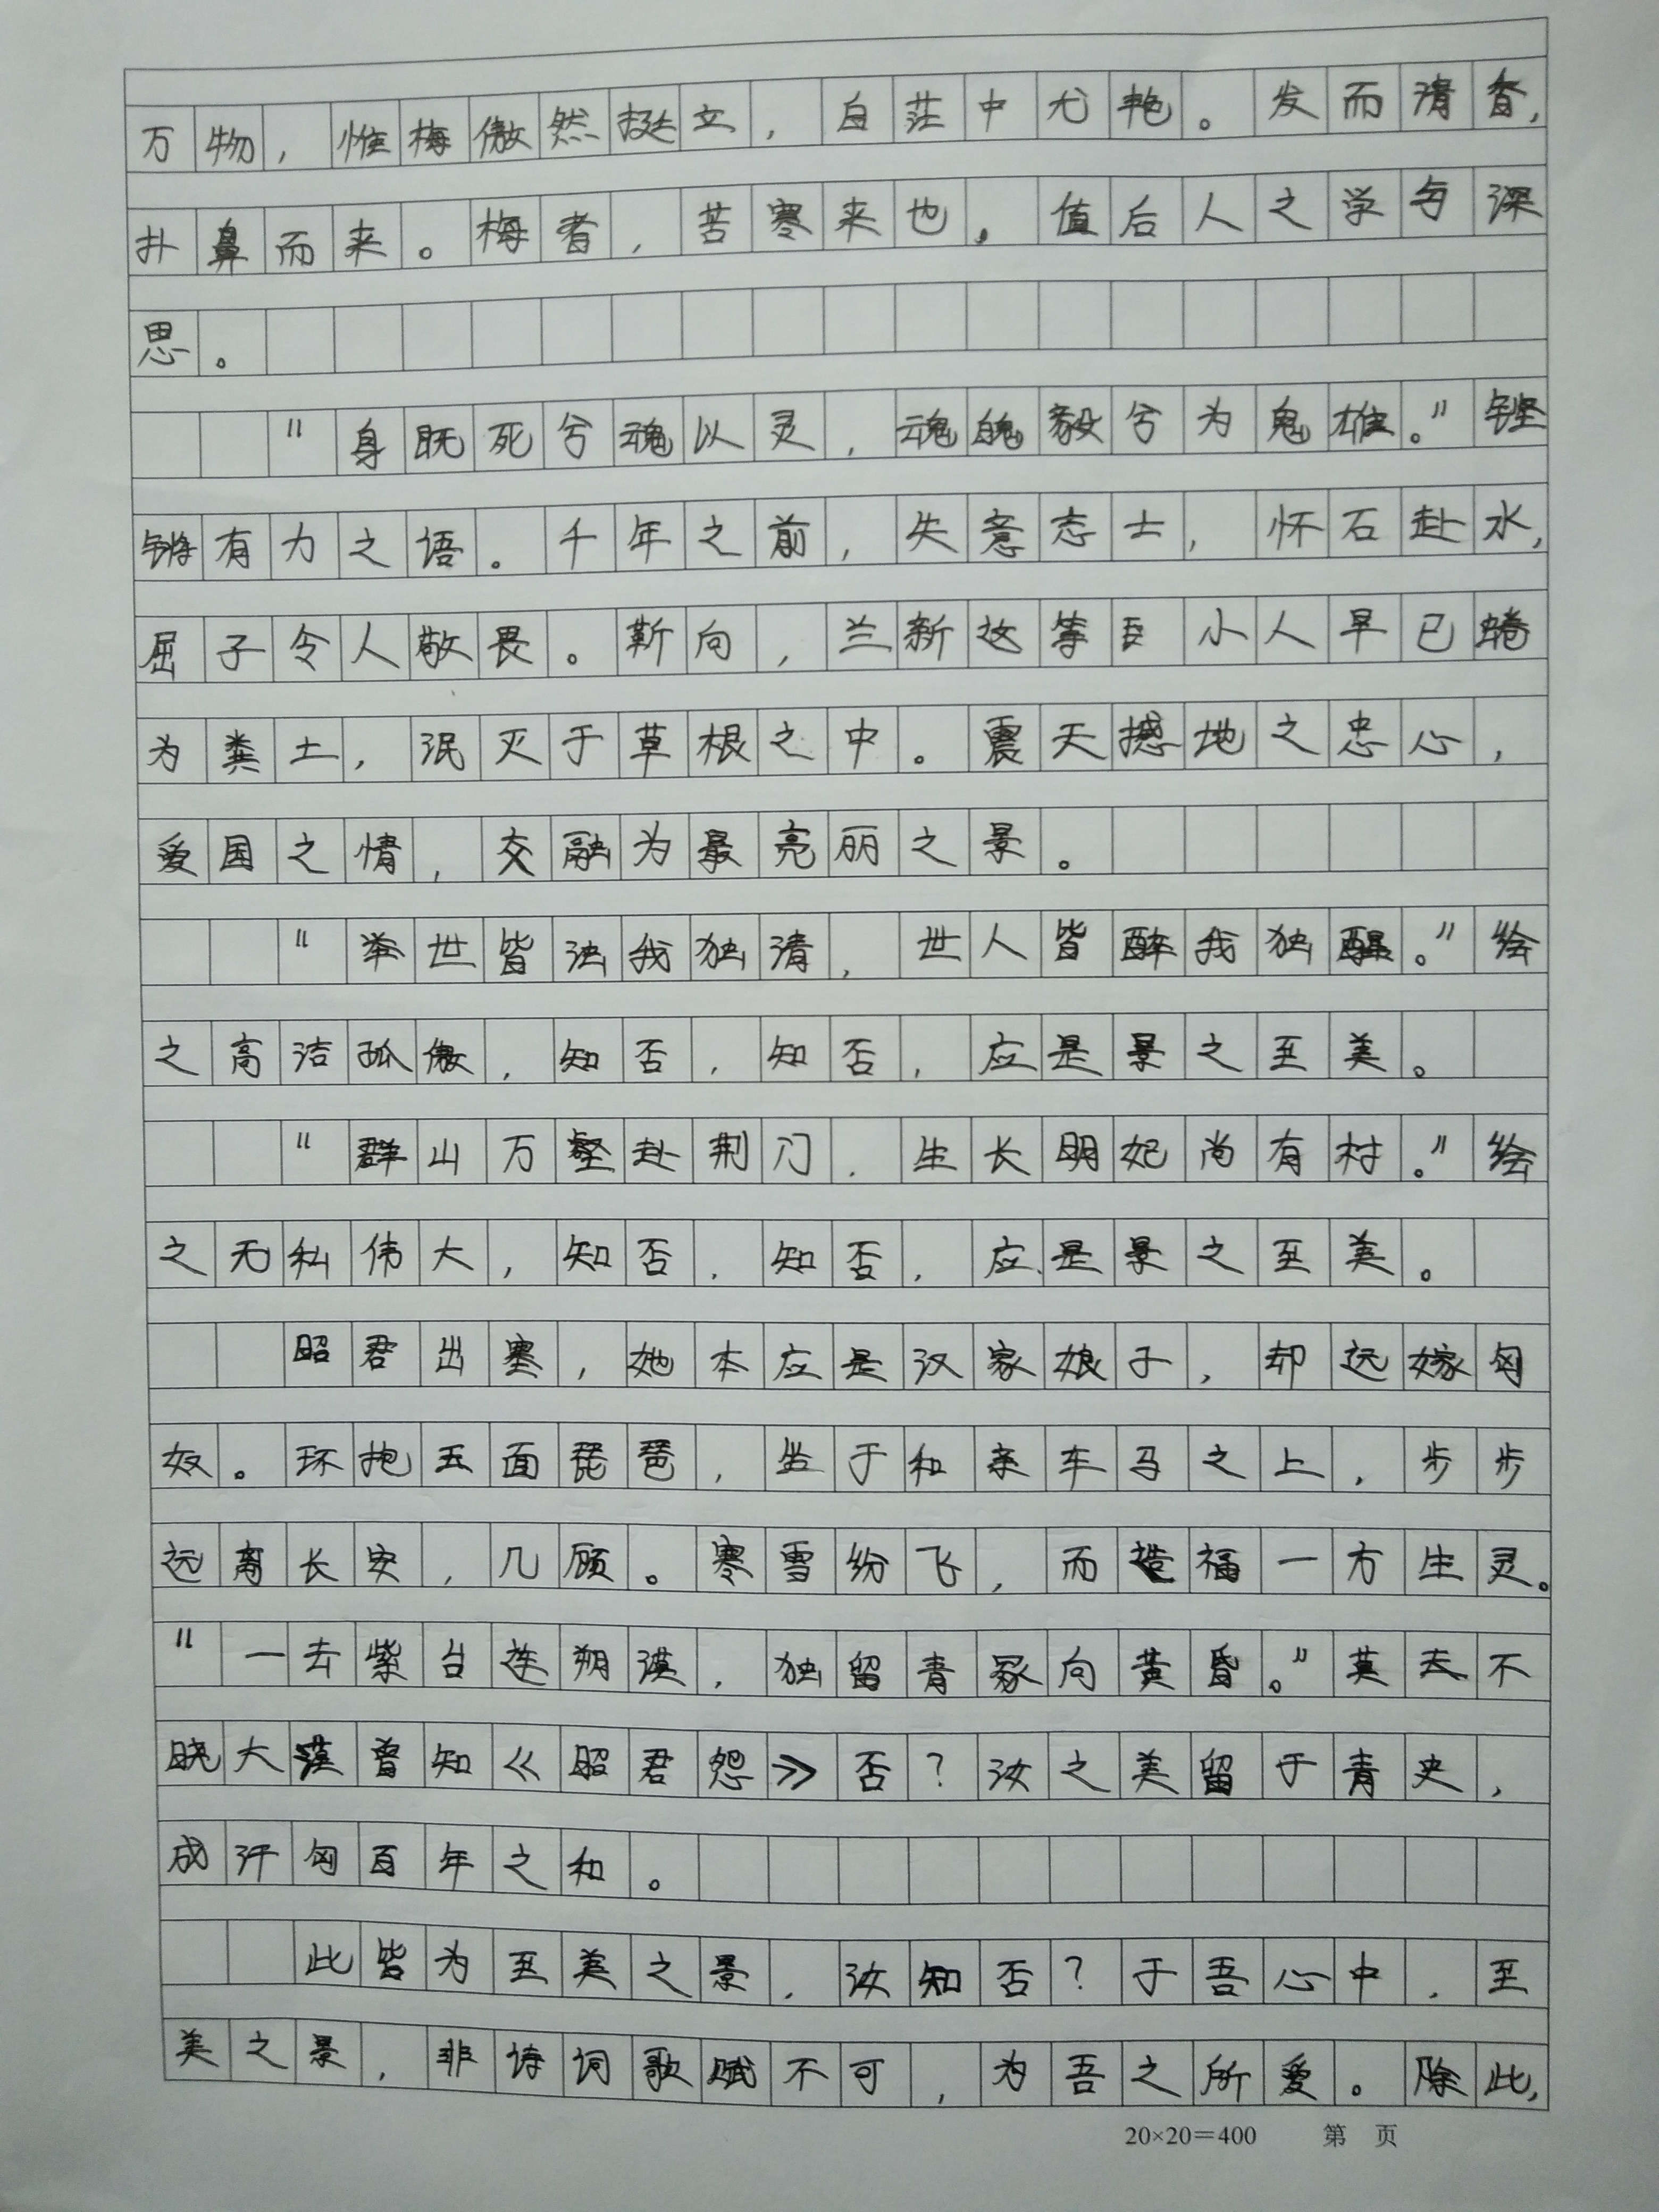 万物，惟梅傲然挺立，白茫中尤艳。发而清香，
扑鼻而来。梅者，苦寒来也，值后人之学与深
思。
“身既死兮魂以灵，魂魄毅兮为鬼雄。”铿
锵有力之语。千年之前，失意志士，怀石赴水，
屈子令人敬畏。靳向，兰新这等臣小人早已蜷
为粪土，泯灭于草根之中。震天撼地之忠心，
爱国之情，交融为最亮丽之景。
“举世皆浊我独清，世人皆醉我独醒。”绘
之高洁孤傲，知否，知否，应是景之至美。
“群山万壑赴荆门，生长明妃尚有村。”绘
之无私伟大，知否，知否，应是景之至美。
昭君出塞，她本应是汉家娘子，却远嫁匈
奴。环抱五面琵琶，坐于和亲车马之上，步步
远离长安，几顾。寒雪纷飞，而造福一方生灵。
“一去紫台连朔漠，独留青冢向黄昏。”莫去不
晓大漠曾知《昭君怨》否？汝之美留于青史，
成汗匈百年之和。
此皆为至美之景，汝知否？于吾心中，至
美之景，非诗词歌赋不可，为吾之所爱。除此，
20×20=400 第 页